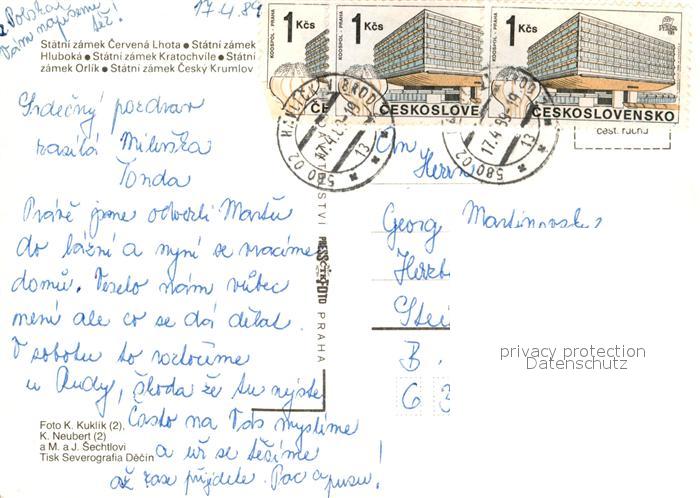 z Polska
Vám napíšeme
též!
17.4.89
Státní zámek Červená Lhota • Státní zámek
Hluboká • Státní zámek Kratochvíle • Státní
zámek Orlík • Státní zámek Český Krumlov
1 Kčs
KOOSPOL - PRAHA
1 Kčs
KOOSPOL - PRAHA
ČESKOSLOVENSKO
1 Kčs
KOOSPOL - PRAHA
PRAGA
ČESKOSLOVENSKO
BROD
580 02
13
17.4.89-19
580 02
13
Srdečný pozdrav
zasílá Miluška
Tonda
Právě jsme odvezli Martu
do lázní a nyní se vracíme
domů. Veselo nám vůbec
není ale co se dá dělat.
V sobotu to roztočíme
u Rudy, škoda že tu nejste
Často na Vás myslíme
a už se těšíme
až zase přijdete. Pac a pusu!
PRESSFOTO
PRAHA
Herrn
Georg Martinovsky
B.
6 3
privacy protection
Datenschutz
Foto K. Kuklík (2),
K. Neubert (2)
a M. a J. Šechtlovi
Tisk Severografia Děčín